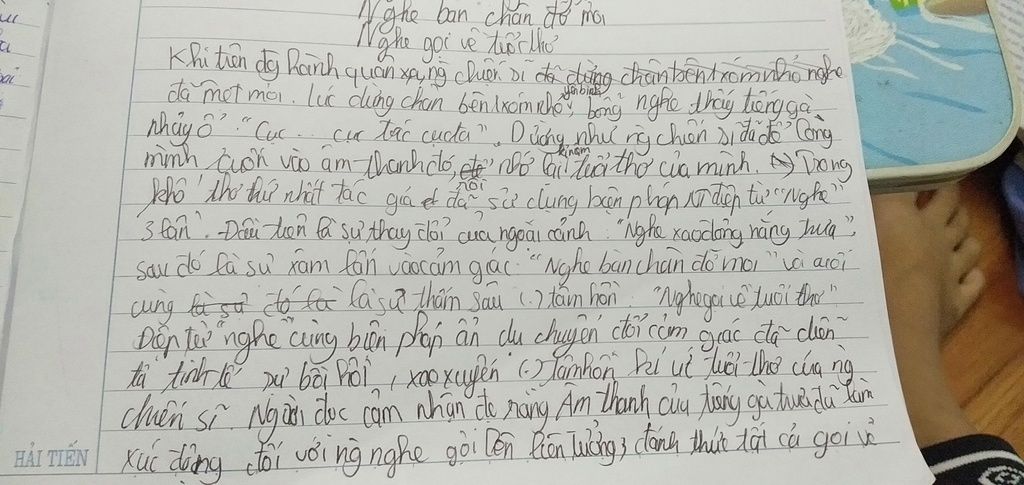 Nghe bàn chân đỡ mỏi
Nghe gọi về tuổi thơ
Khi trên đg hành quân xa, ng chiến sĩ đã dừng chân bên xóm nhỏ nghe
đã mệt mỏi. Lúc dừng chân bên xóm nhỏ yên bình, bỗng nghe thấy tiếng gà
nhảy ổ "Cục ... cục tác cục ta". Dường như ng chiến sĩ đã để lòng
mình cuốn vào âm thanh đó, để nhớ lại kỉ niệm tuổi thơ của mình. Trong
khổ thơ thứ nhất tác giả đã sử dụng biện pháp NT điệp từ "Nghe"
3 lần. Đầu tiên là sự thay đổi của ngoại cảnh: "Nghe xao động nắng trưa",
sau đó là sự xâm lấn vào cảm giác: "Nghe bàn chân đỡ mỏi" và cuối
cùng là sự đó là là sự thấm sâu (.) tâm hồn: "Nghe gọi về tuổi thơ".
Điệp từ "nghe" cùng biện pháp ẩn dụ chuyển đổi cảm giác đã diễn
tả tinh tế sự bồi hồi, xao xuyến (.) tâm hồn kí ức tuổi thơ của ng
chiến sĩ. Người đọc cảm nhận đc rằng Âm thanh của tiếng gà trưa đã làm
xúc động đối với ng nghe gợi lên liên tưởng, đánh thức tất cả gọi về
HẢI TIẾN